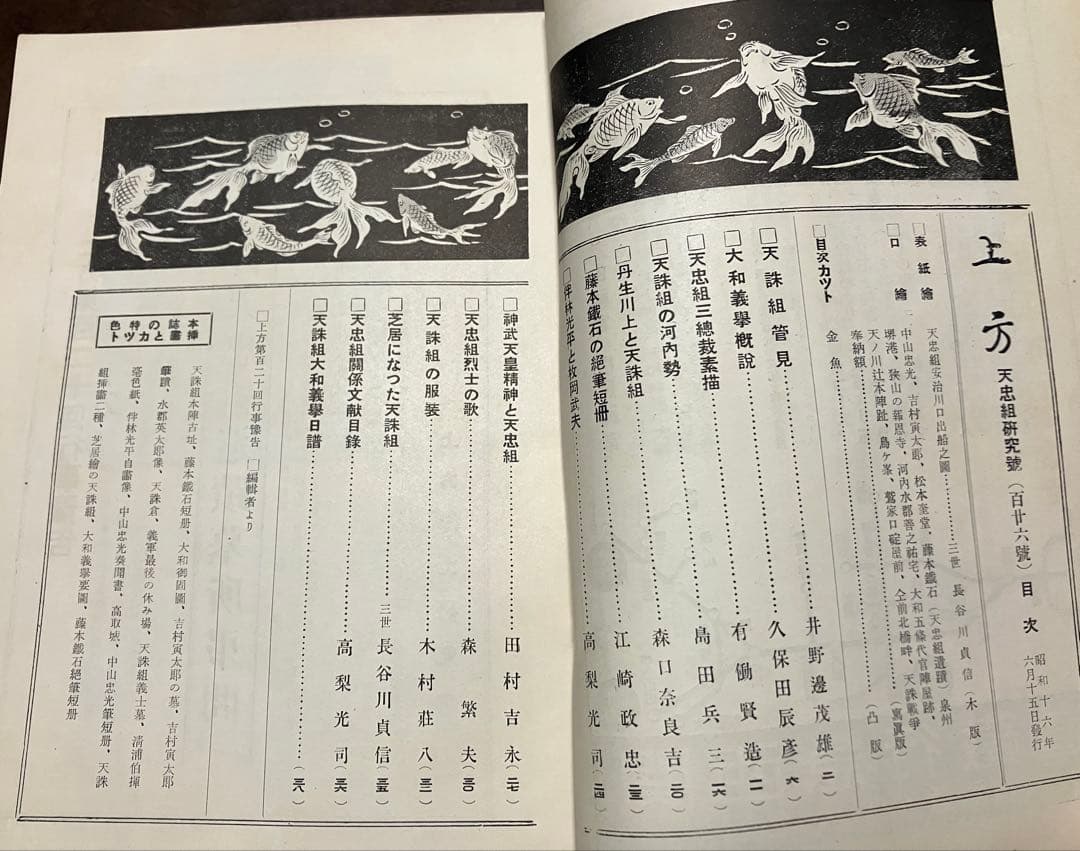 上方 天忠組研究號（百廿六號）目次
昭和十六年
六月十五日發行
□表紙繪 天忠組安治川口出船之圖………三世 長谷川貞信（木版）
□口繪 中山忠光、吉村寅太郎、松本奎堂、藤本鐵石（天忠組遺蹟）泉州
堺港、狹山の報恩寺、河内水郡善之祐宅、大和五條代官陣屋跡、
天ノ川辻本陣趾、鳥ヶ峯、鷲家口碇屋前、仝前北橋畔、天誅戰爭（寫眞版）
奉納額………（凸版）
□目次カツト 金魚………
□天誅組管見………井野邊茂雄（二）
□大和義擧概說………久保田辰彦（六）
□天忠組三總裁素描………有働賢造（一一）
□天誅組の河內勢………島田兵三（一六）
□丹生川上と天誅組………森口奈良吉（二〇）
□藤本鐵石の絕筆短冊………江崎政忠（二三）
□伴林光平と枚岡武夫………高梨光司（二四）
□神武天皇精神と天忠組………田村吉永（二七）
□天忠組烈士の歌………森繁夫（三〇）
□天誅組の服裝………木村莊八（三二）
□芝居になつた天誅組………三世 長谷川貞信（三五）
□天忠組關係文献目錄………高梨光司（三六）
□天誅組大和義擧日譜………（三八）
□上方第百二十回行事豫告 □編輯者より
本誌の特色
挿畵とカツト
天誅組本陣古址、藤本鐵石短册、大和御固圖、吉村寅太郎の墓、吉村寅太郎
筆蹟、水郡英太郎像、天誅倉、義軍最後の休み場、天誅組義士墓、淸浦伯揮
毫色紙、伴林光平自畵像、中山忠光奏聞書、高取城、中山忠光筆短册、天誅
組挿畵二種、芝居繪の天誅組、大和義擧要圖、藤本鐵石絕筆短册